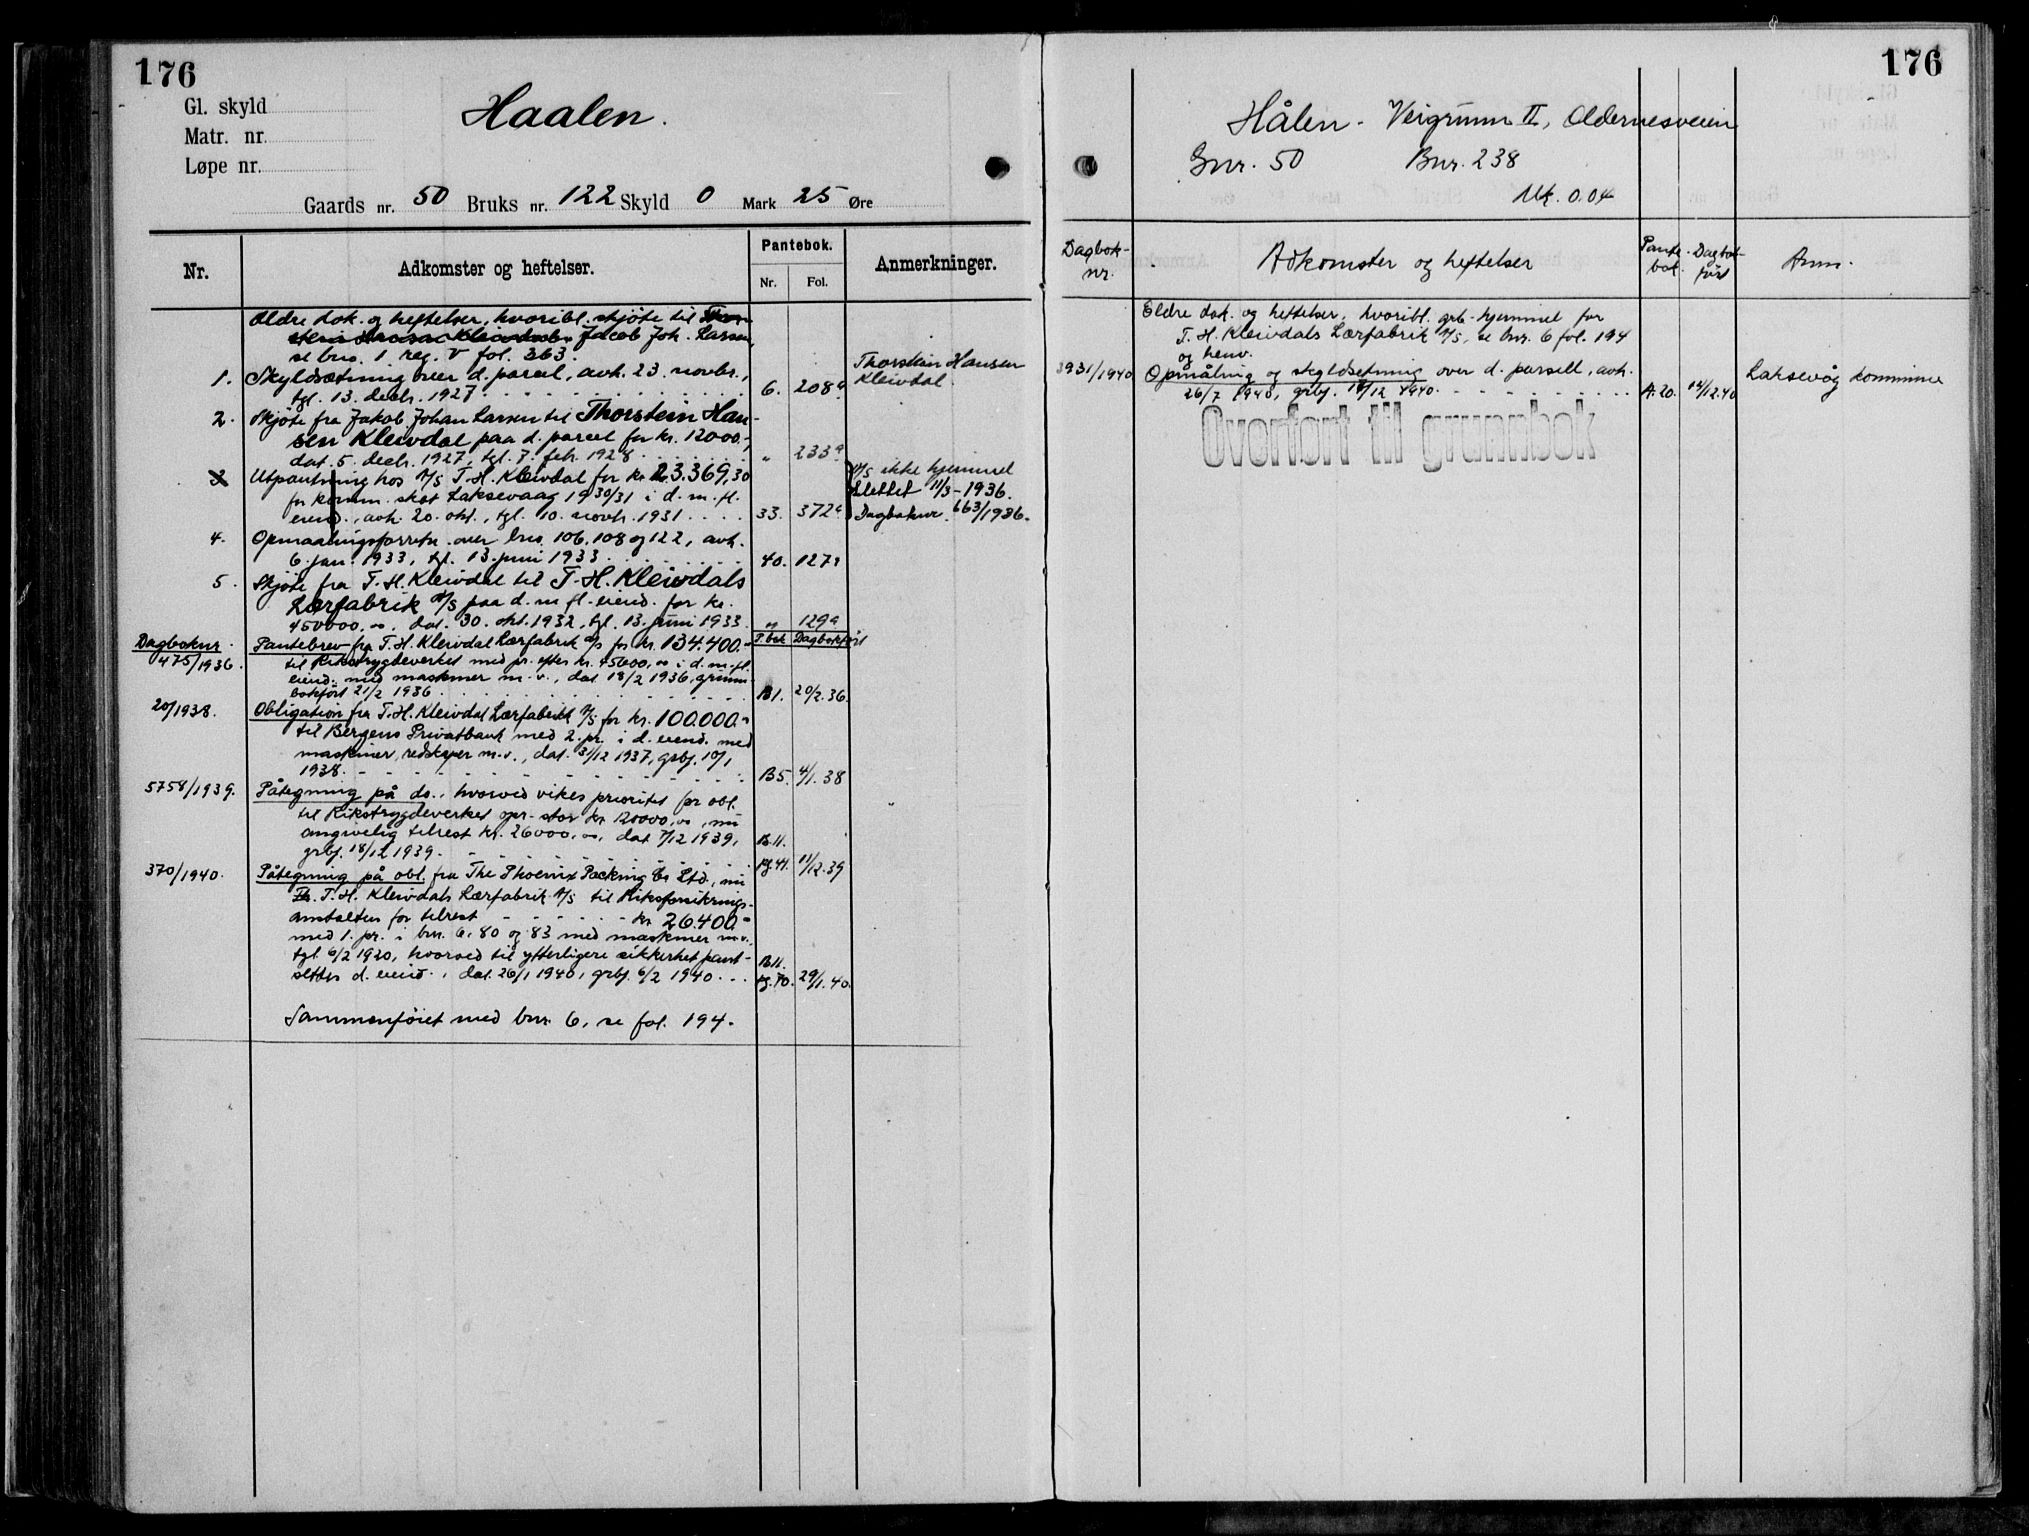 176
Gl. skyld
Matr. nr.
Løpe nr.
Haalen.
Gaards nr. 50 Bruks nr. 122 Skyld 0 Mark 25 Øre
Nr. Adkomster og heftelser. Pantebok. Nr. Fol. Anmerkninger.
Ældre dok. og heftelser, hvoribl. skjøte til
Jacob Joh. Larsen,
se brno. 1 reg. V fol. 363.
1. Skyldsætning over d. parcel, avh. 23. novbr.,
tgl. 13. decbr. 1927 6. 208a Thorstein Hansen Kleivdal.
2. Skjøte fra Jakob Johan Larsen til Thorstein Han-
sen Kleivdal paa d. parcel for kr. 12000.-,
dat. 5. decbr. 1927, tgl. 7. febr. 1928 " 233a
3 Utpantning hos A/S T.H. Kleivdal for kr. 23.369,30
for komm. skat Laksevaag 1930/31 i d. m. fl.
eiend., avh. 20. okt., tgl. 10. novbr. 1931 33. 372a
A/S ikke hjemmel
Slettet 11/3-1936.
Dagboknr. 663/1936.
4. Opmaalingsforretn. over brno. 106, 108 og 122, avh.
6. jan. 1933, tgl. 13. juni 1933 40. 127a
5. Skjøte fra T.H. Kleivdal til T.H. Kleivdals
Lærfabrik A/S paa d. m. fl. eiend. for kr.
450000.00, dat. 30. okt. 1932, tgl. 13. juni 1933 " 129a
Dagboknr. P.bok Dagbokført
475/1936. Pantebrev fra T.H. Kleivdal Lærfabrik A/S for kr. 134.400.-
til Rikstrygdeverket med pr. efter kr. 45000,00 i d. m. fl.
eiend. med maskiner m.v., dat. 18/2 1936, grunn-
bokført 21/2 1936 B1. 20/2.36.
20/1938. Obligation fra T.H. Kleivdal Lærfabrikk A/S for kr. 100.000.-
til Bergens Privatbank med 2. pr. i d. eiend. med
maskiner, redskaper m.v., dat. 31/12 1937, grbf. 10/1
1938. B5. 4/1.38
5758/1939. Påtegning på do., hvorved vikes prioritet for obl.
til Rikstrygdeverket opr. stor kr. 120000,00, nu
angivelig tilrest kr. 26000,00, dat. 7/12 1939,
grbf. 18/12 1939. B.11. pg.41. 11/12.39
370/1940. Påtegning på obl. fra The Phoenix Packing Co Ltd., nu
T.H. Kleivdals Lærfabrik A/S til Riksforsikrings-
anstalten for tilrest kr. 26.400.-
med 1. pr. i bnr. 6, 80 og 83 med maskiner m.v.,
tgl. 6/2 1920, hvorved til ytterligere sikkerhet pant-
settes d. eiend., dat. 26/1 1940, grbf. 6/2 1940. B.11. pg.70. 29/1.40.
Sammenføiet med bnr. 6, se fol. 194.
176
Hålen - Veigrunn II, Aldernesveien
Gnr. 50 Bnr. 238
Mk. 0.04
Dagbok-nr. Adkomster og heftelser Pante-bok. Dagbok-ført Anm.
Eldre dok. og heftelser, hvoribl. grb.hjemmel for
T.H. Kleivdals Lærfabrik A/S, se bnr. 6 fol. 194
og henv.
3931/1940 Opmåling og skyldsetning over d. parsell, avh.
26/7 1940, grbf. 18/12 1940. A.20. 14/12.40 Laksevåg kommune
Overført til grunnbok